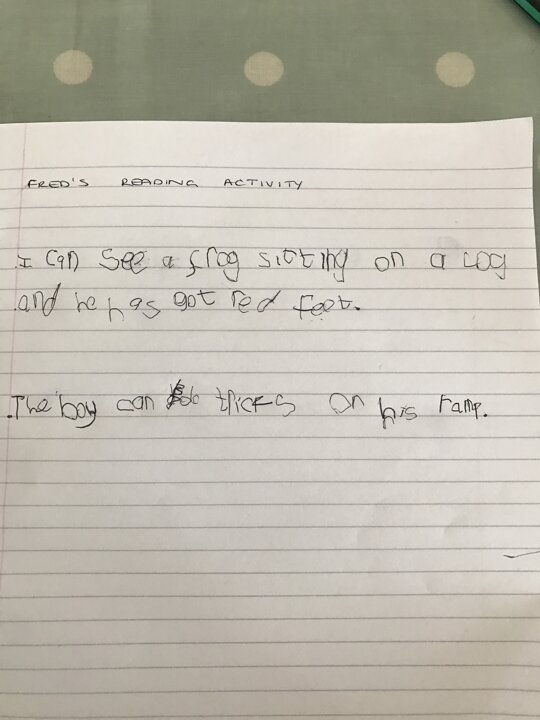 FRED'S READING ACTIVITY
I can see a frog sitting on a cog
and he has got red feet.
The boy can do tricks on his ramp.